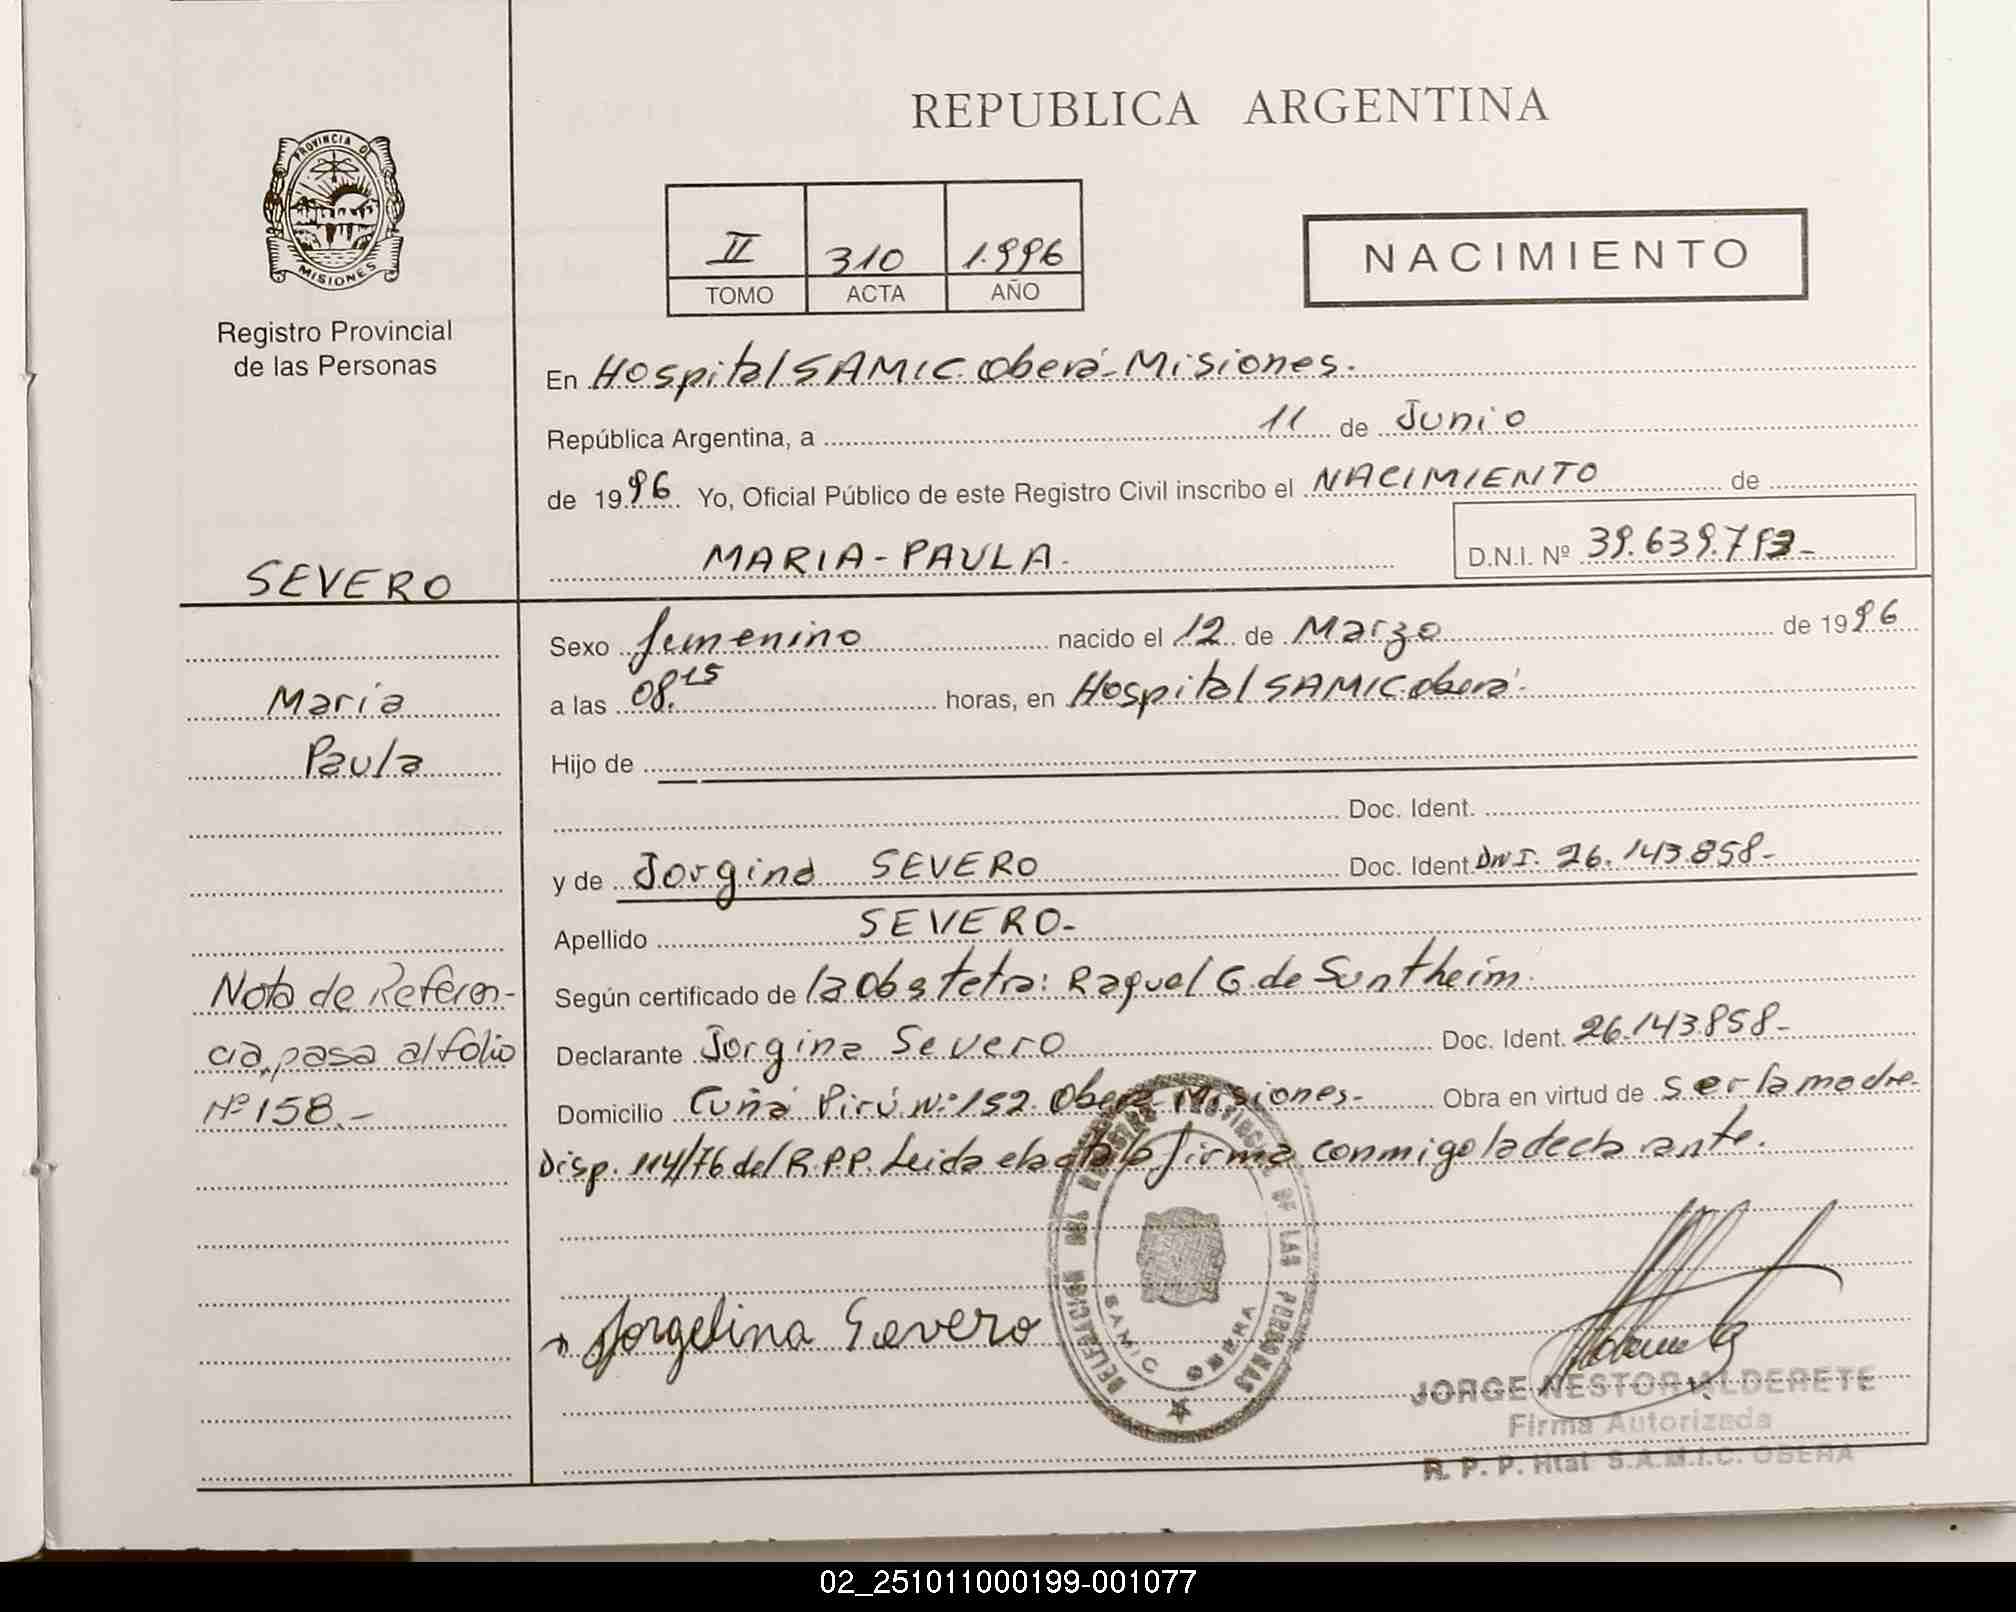 REPUBLICA ARGENTINA
PROVINCIA DE
MISIONES
Registro Provincial
de las Personas
II 310 1.996
TOMO ACTA AÑO
NACIMIENTO
En Hospital SAMIC Oberá-Misiones.
República Argentina, a 11 de Junio
de 1996 Yo, Oficial Público de este Registro Civil inscribo el NACIMIENTO de
MARIA-PAULA- D.N.I. Nº 39.639.793-
SEVERO
Sexo femenino nacido el 12 de Marzo de 1996
María
a las 08.15 horas, en Hospital SAMIC Oberá-
Paula
Hijo de
Doc. Ident.
y de Jorgina SEVERO Doc. Ident. DNI. 26.143.858-
Apellido SEVERO-
Nota de Referen-
Según certificado de la Obstetra: Raquel G. de Suntheim.
cia, pasa al folio
Declarante Jorgina Severo Doc. Ident. 26.143.858-
Nº 158.-
Domicilio Cuñá Pirú Nº 152. Oberá-Misiones- Obra en virtud de ser la madre-
Disp. 114/76 del R.P.P. Leida el acta la firma conmigo la declarante.
Jorgelina Severo
DE LAS PERSONAS
SAMIC OBERA
JORGE NESTOR ALDERETE
Firma Autorizada
R. P. P. Htal S.A.M.I.C. OBERA
02_251011000199-001077